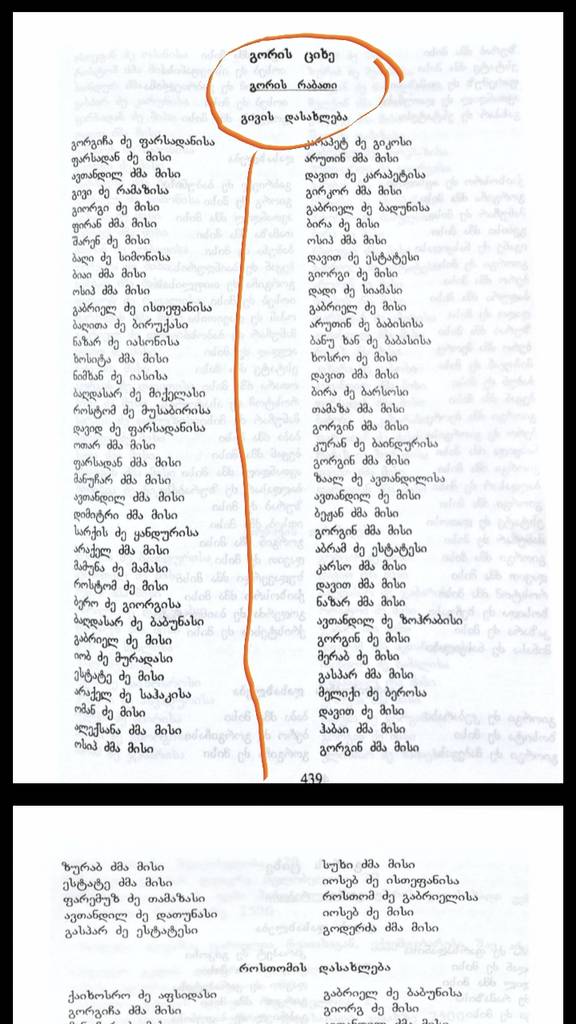 გორის ციხე
გორის რაბათი
გივის დასახლება
გორგიჩა ძე ფარსადანისა
ფარსადან ძე მისი
ავთანდილ ძმა მისი
გივი ძე რამაზისა
გიორგი ძე მისი
ფირან ძმა მისი
შარენ ძე მისი
ბალი ძე სიმონისა
ბიაი ძმა მისი
ოსიპ ძმა მისი
გაბრიელ ძე ისთეფანისა
ბაღითა ძე ბირუქასი
ნაზარ ძე იასონისა
ზოსიტა ძმა მისი
ნიმზან ძე იასისა
ბაღდასარ ძე მიქელასი
როსტომ ძე მუსაბირისა
დავიდ ძე ფარსადანისა
ოთარ ძმა მისი
ფარსადან ძმა მისი
მანუჩარ ძმა მისი
ავთანდილ ძმა მისი
დიმიტრი ძმა მისი
სარქის ძე ყანდურისა
არაქელ ძმა მისი
მამუნა ძე მამასი
როსტომ ძე მისი
ბერო ძე გიორგისა
ბაღდასარ ძე ბაბუნასი
გაბრიელ ძე მისი
იობ ძე მურადასი
ესტატე ძე მისი
არაქელ ძე საჰაკისა
ომან ძე მისი
ალექსანა ძმა მისი
ოსიპ ძმა მისი
კარაპეტ ძე გიკოსი
არუთინ ძმა მისი
დავით ძე კარაპეტისა
გირკორ ძმა მისი
გაბრიელ ძე ბადუნისა
ბირა ძე მისი
ოსიპ ძმა მისი
დავით ძე ესტატესი
გიორგი ძე მისი
დადი ძე სიამასი
გაბრიელ ძე მისი
არუთინ ძე ბაბისისა
ბანუ ხან ძე ბაბასისა
ხოსრო ძე მისი
დავით ძმა მისი
ბირა ძე ბარსოსი
თამაზა ძმა მისი
გორგინ ძმა მისი
კურან ძე ბაინდურისა
გორგინ ძმა მისი
ზაალ ძე ავთანდილისა
ავთანდილ ძე მისი
ბეჟან ძმა მისი
გორგინ ძმა მისი
აბრამ ძე ესტატესი
კარსო ძმა მისი
დავით ძმა მისი
ნაზარ ძმა მისი
ავთანდილ ძე ზოჰრაბისი
გორგინ ძე მისი
მერაბ ძე მისი
გასპარ ძმა მისი
მელიქი ძე ბეროსა
დავით ძე მისი
პაბაი ძმა მისი
გორგინ ძმა მისი
439
ზურაბ ძმა მისი
ესტატე ძმა მისი
ფარემუზ ძე თამაზასი
ავთანდილ ძე დათუნასი
გასპარ ძე ესტატესი
სუხი ძმა მისი
იოსებ ძე ისთეფანისა
როსთომ ძე გაბრიელისა
იოსებ ძე მისი
გოდერძა ძმა მისი
როსთომის დასახლება
ქაიხოსრო ძე აფსიდასი
გორგიჩა ძმა მისი
გაბრიელ ძე ბაბუნისა
გიორგ ძე მისი